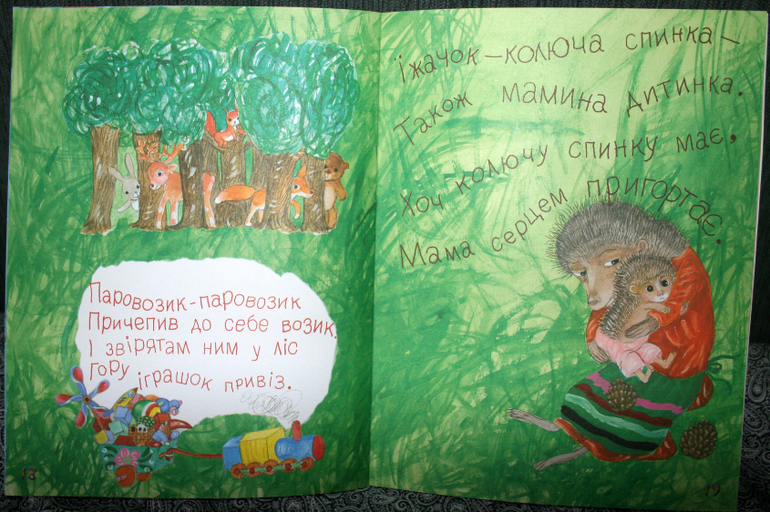 Паровозик-паровозик
Причепив до себе возик.
І звірятам ним у ліс
Гору іграшок привіз.
18
їжачок–колюча спинка–
Також мамина дитинка.
Хоч колючу спинку має,
Мама серцем пригортає.
19